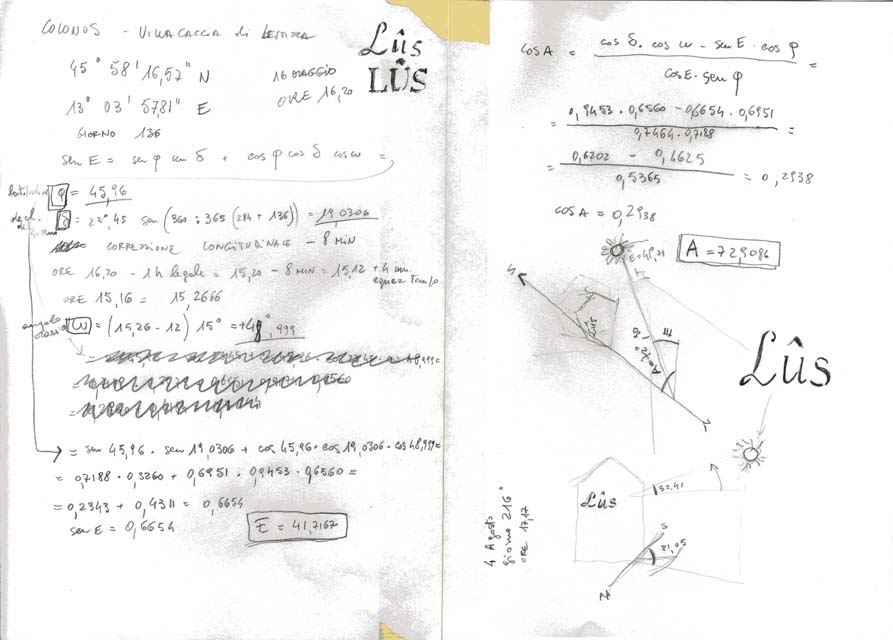 COLONOS - VILLACACCIA di LESTIZZA
Lûs
LÛS
45° 58' 16,57" N
16 MAGGIO
13° 03' 57,81" E
ORE 16,20
GIORNO 136
sen E = sen φ sen δ + cos φ cos δ cos ω =
φ = 45,96
δ = 23°,45 sen (360 : 365 (284 + 136)) = 19,0306
CORREZIONE LONGITUDINALE - 8 MIN
ORE 16,20 - 1h legale = 15,20 - 8 MIN = 15,12 + 4 min
equaz tempo
ORE 15,16 = 15,2666
angolo
orario ω = (15,26 - 12) 15° = +48°,999
= sen 45,96 . sen 19,0306 + cos 45,96 . cos 19,0306 . cos 48,999 =
= 0,7188 . 0,3260 + 0,6951 . 0,9453 . 0,6560 =
= 0,2343 + 0,4311 = 0,6654
sen E = 0,6654
E = 41,7167
cos A = cos δ . cos ω - sen E . cos φ =
cos E . sen φ
= 0,9453 . 0,6560 - 0,6654 . 0,6951 =
0,7464 . 0,7188
= 0,6202 - 0,4625 = 0,2938
0,5365
cos A = 0,2938
A = 72,9086
E = 41,71
S
Lûs
E
A = 72°
N
Lûs
Lûs
32,41
S
21,05
N
4 Agosto
giorno 216°
ORE 17,17